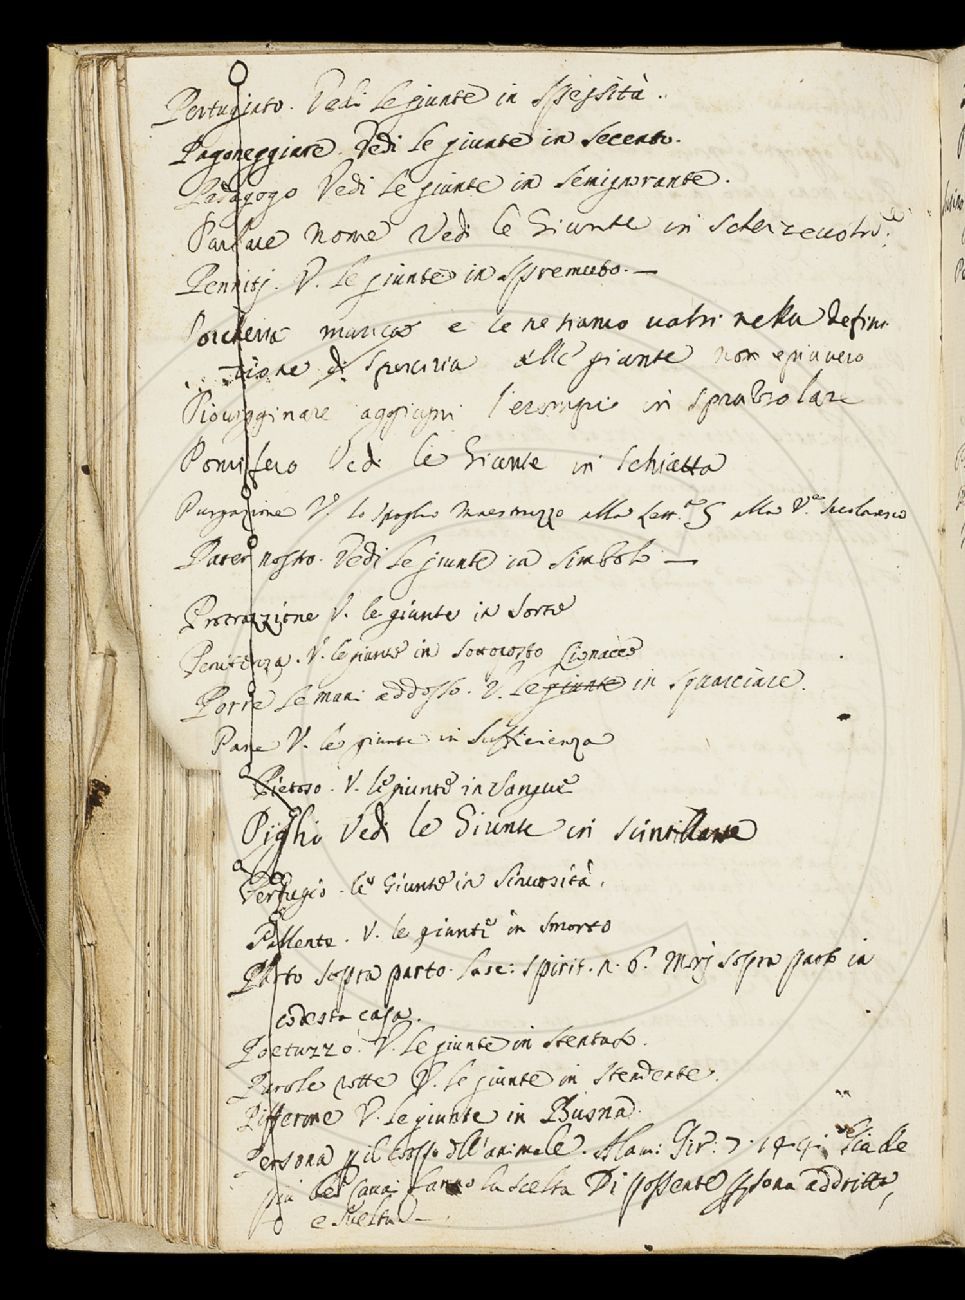 Pertugiato. Vedi le giunte in Spessità.
Pagoneggiare. Vedi le giunte in Secento.
Pedagogo Vedi le giunte in Semignorante.
Nome Vedi le Giunte in
V. le giunte in Spremuto. —
Porcheria manca e le ne siamo nella defini
zione di Sporcizia alle giunte non
aggiugni l'esempio in Spruzzolare
Pomifero Vedi le Giunte in Schiatta
Purgazione V. lo spoglio Maestruzzo alla Lett.ra S alla V.e
Pater nostro. Vedi le giunte in Simbolo —
Protrazzione V. le giunte in Sorte
Penitenza. V. le giunte in Sottoposto
Porre le mani addosso. V. le giunte in Squarciare.
Pane V. le giunte in Sufficienza
Pietoso. V. le giunte in Sangue
Piglio Vedi le Giunte in Scintillante
Perfugio. le Giunte in Sinuosità.
Pallente. V. le giunte in Smorto
Parto sopra parto. Lasc: Spirit. n. 6. Morj sopra parto in
codesta casa.
Poetuzzo. V. le giunte in Stentato.
Parole rotte V. le giunte in Stendente.
Pifferone V. le giunte in Buona.
Persona p il Corpo dell'animale. Alam: Gir: 7. 14
più bei Cavai fanno la scelta Di possente psona addritta,
e svelta —